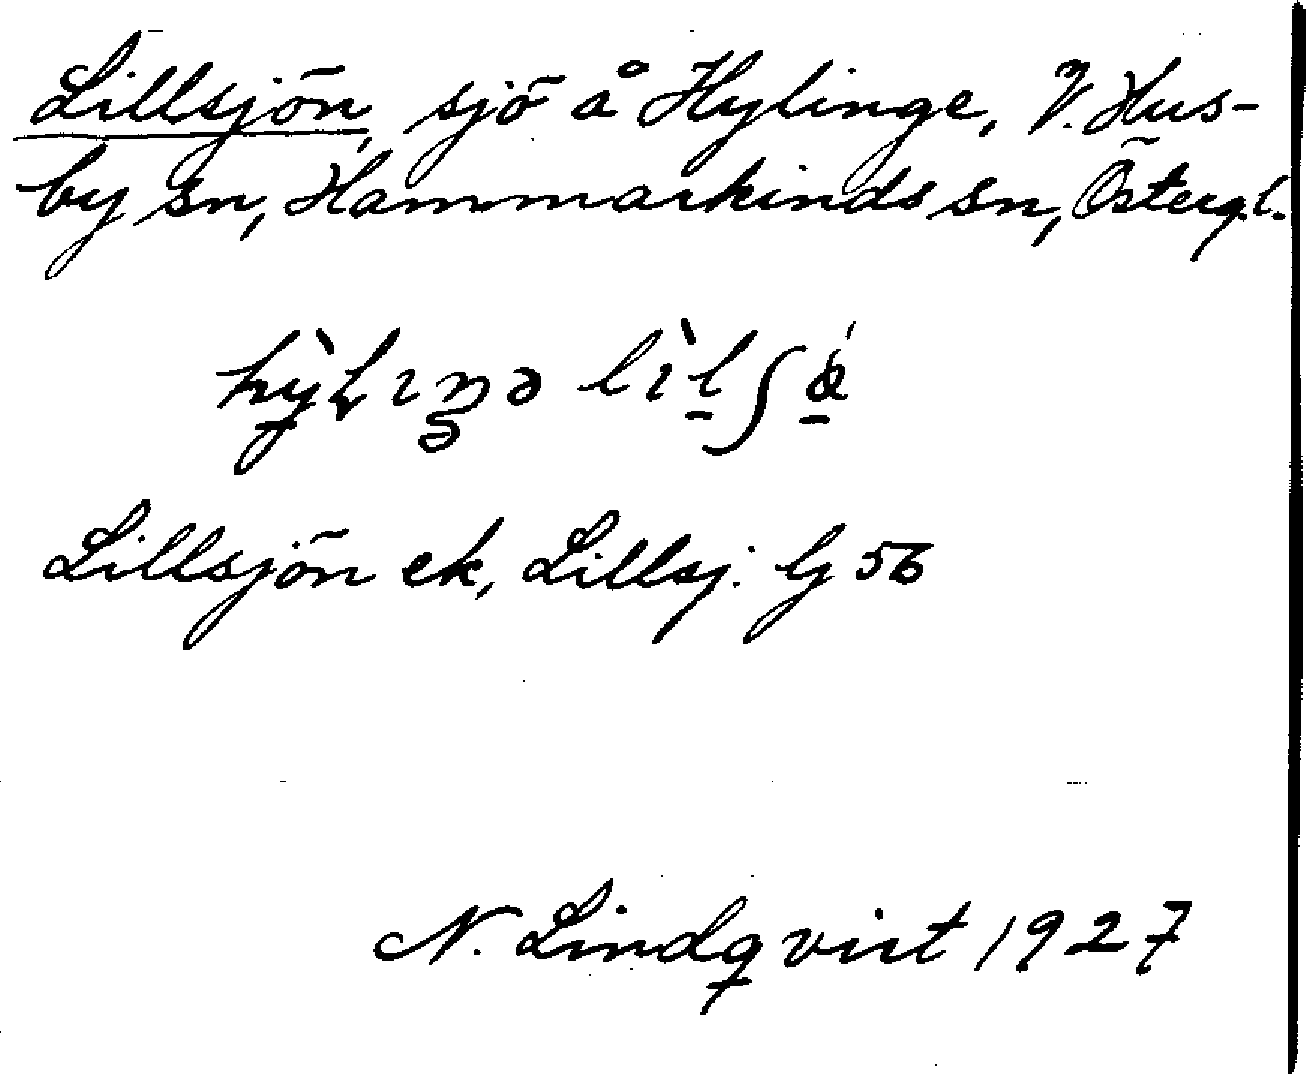 Lillsjön, sjö å Hylinge, V. Hus-
by sn, Hammarkinds sn, Östergl.
Lillsjön ek, Lillsj. Gj 56
N. Lindqvist 1927